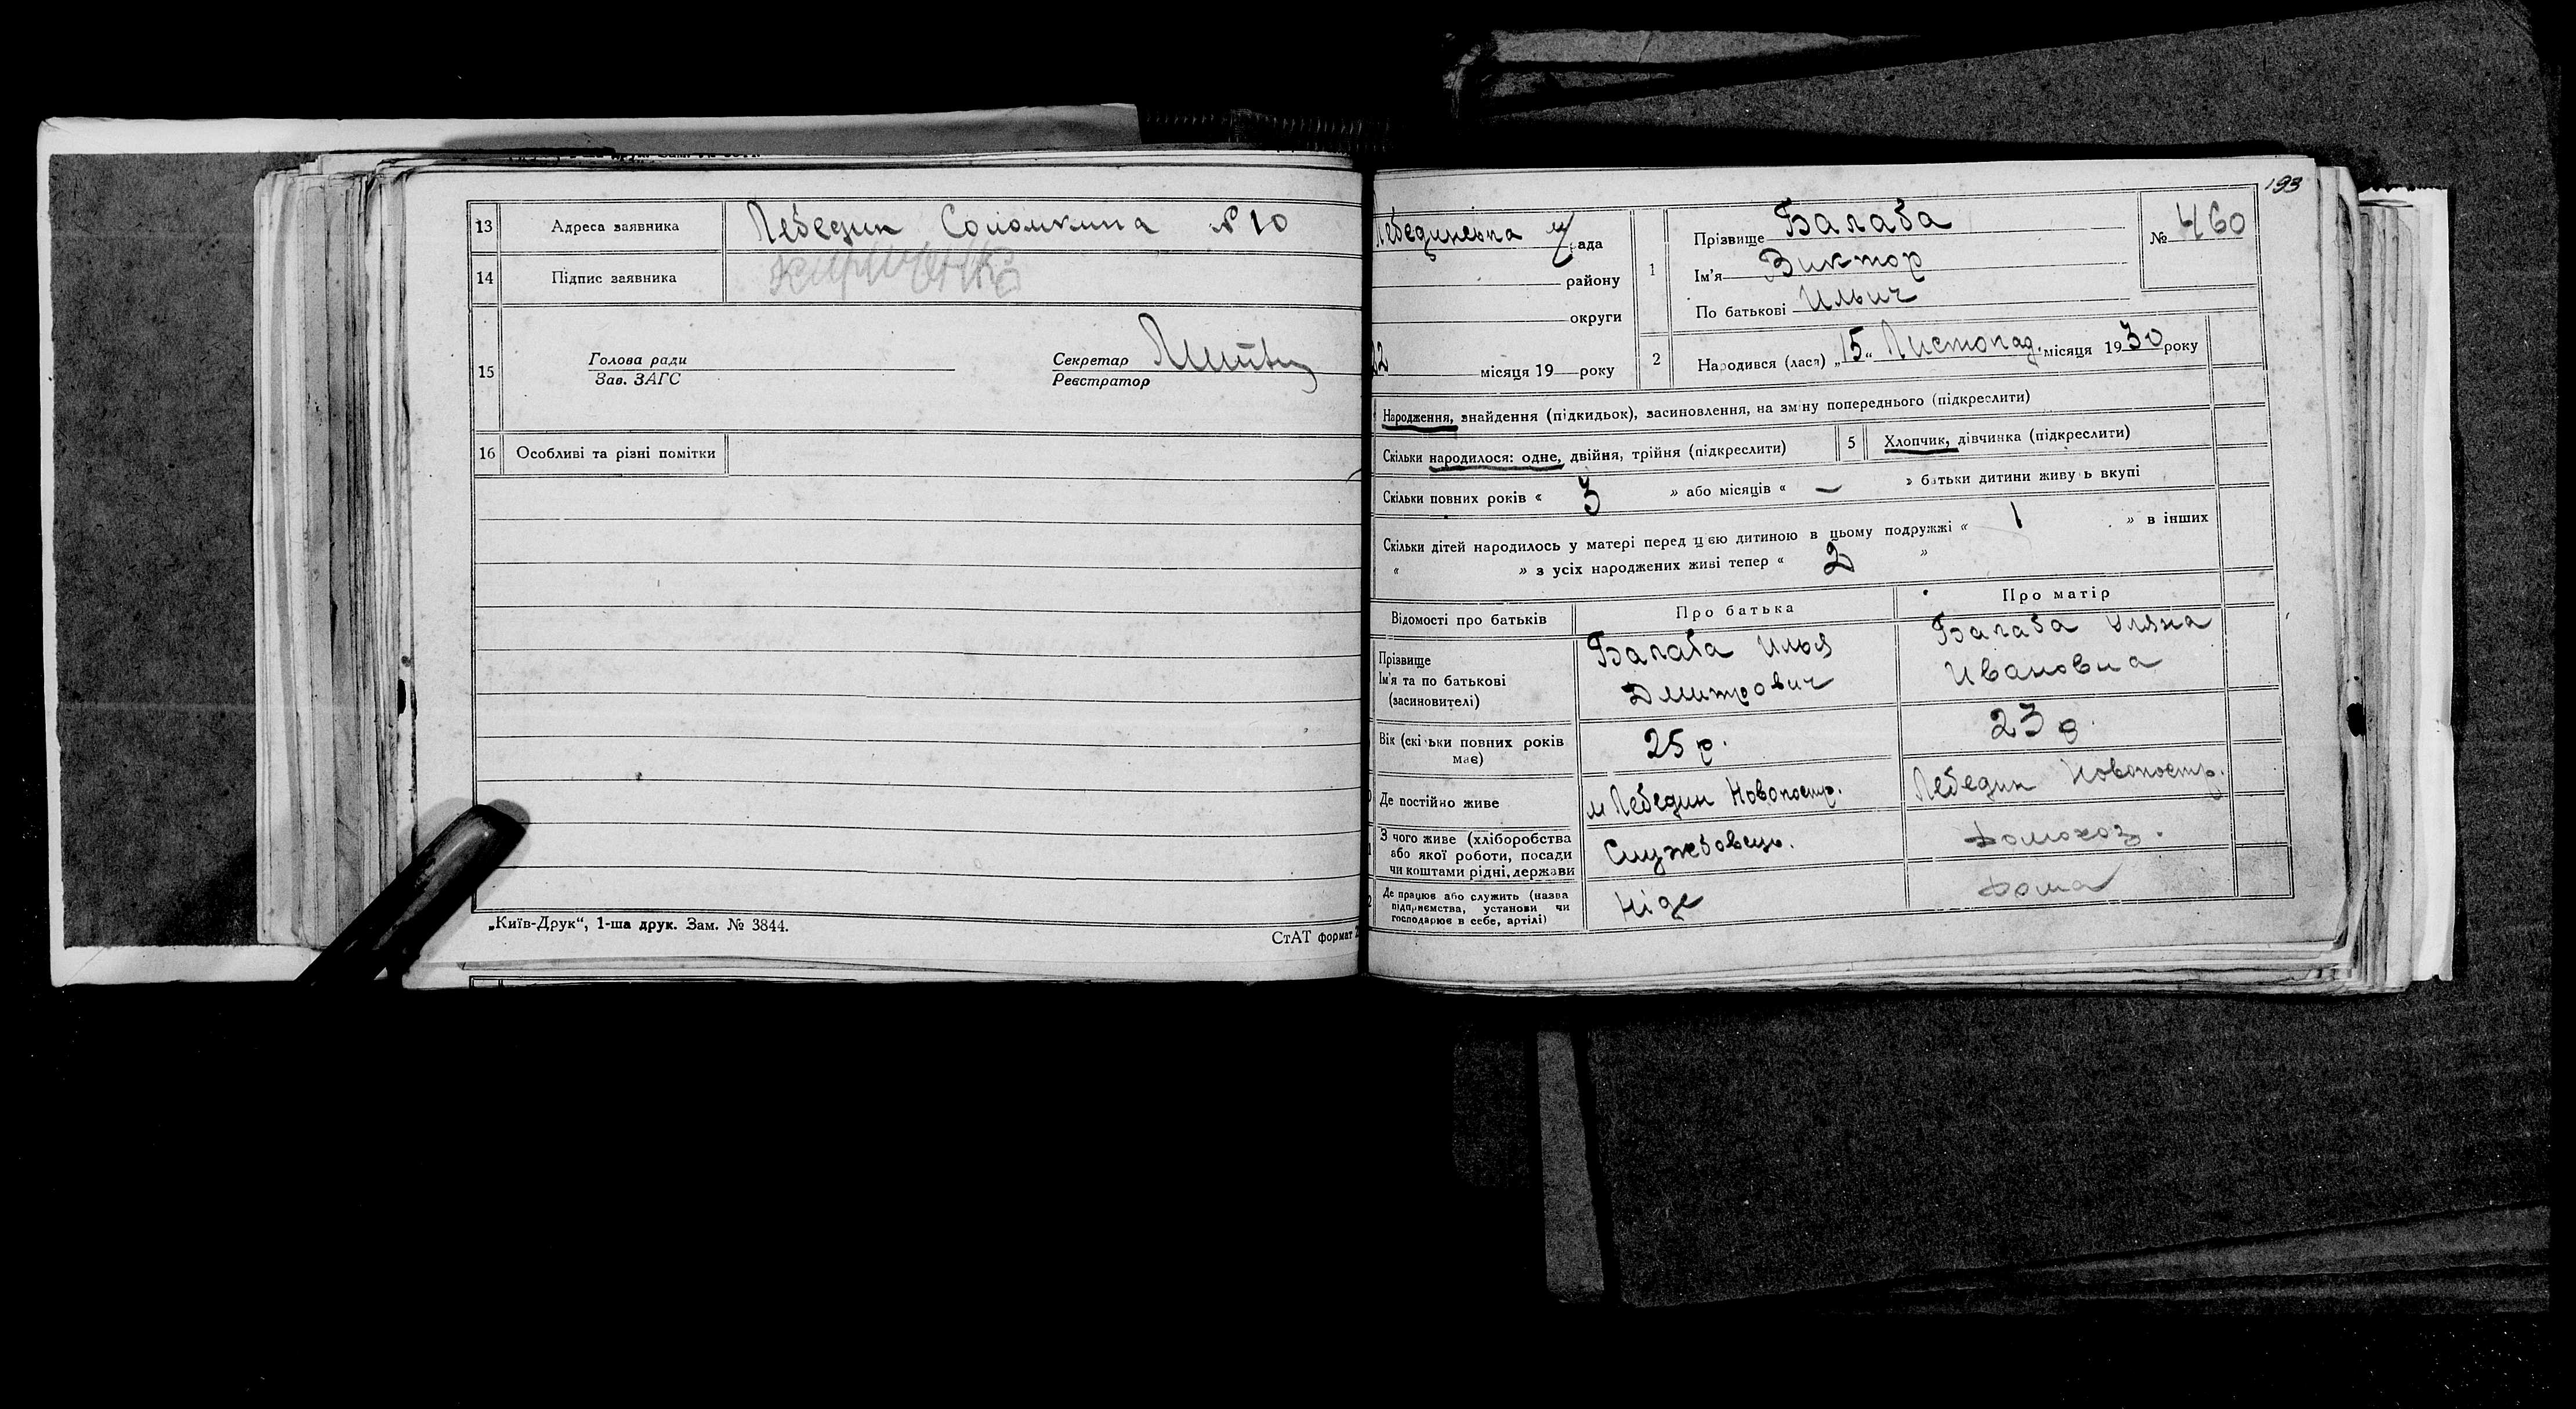 13 Адреса заявника Лебедин Соломкина №10
14 Підпис заявника
15 Голова ради
Зав. ЗАГС
Секретар
Реєстратор
16 Особливі та різні помітки
„Київ-Друк“, 1-ша друк. Зам. № 3844.
СтАТ формат
193
Лебединська рада
району
округи
22 місяця 19 року
1 Прізвище Балаба
Ім'я Виктор
По батькові Ильич
№ 460
2 Народився (лася) „15“ Листопад. місяця 1930 року
Народження, знайдення (підкидьок), засиновлення, на зміну попереднього (підкреслити)
Скільки народилося: одне, двійня, трійня (підкреслити) 5 Хлопчик, дівчинка (підкреслити)
Скільки повних років « 3 » або місяців « — » батьки дитини живуть вкупі
Скільки дітей народилось у матері перед цією дитиною в цьому подружжі « 1 » в інших
« » з усіх народжених живі тепер « 2 »
Відомості про батьків Про батька Про матір
Прізвище
Ім'я та по батькові
(засиновителі)
Балаба Илья
Дмитрович
Балаба Уляна
Ивановна
Вік (скільки повних років
має)
25 р.
23 р.
Де постійно живе м Лебедин Новопостр. Лебедин Новопостр.
З чого живе (хліборобства
або якої роботи, посади
чи коштами рідні, держави
Службовець.
Домохоз.
Де працює або служить (назва
підприємства, установи чи
господарює в себе, артілі)
Ніде
Дома